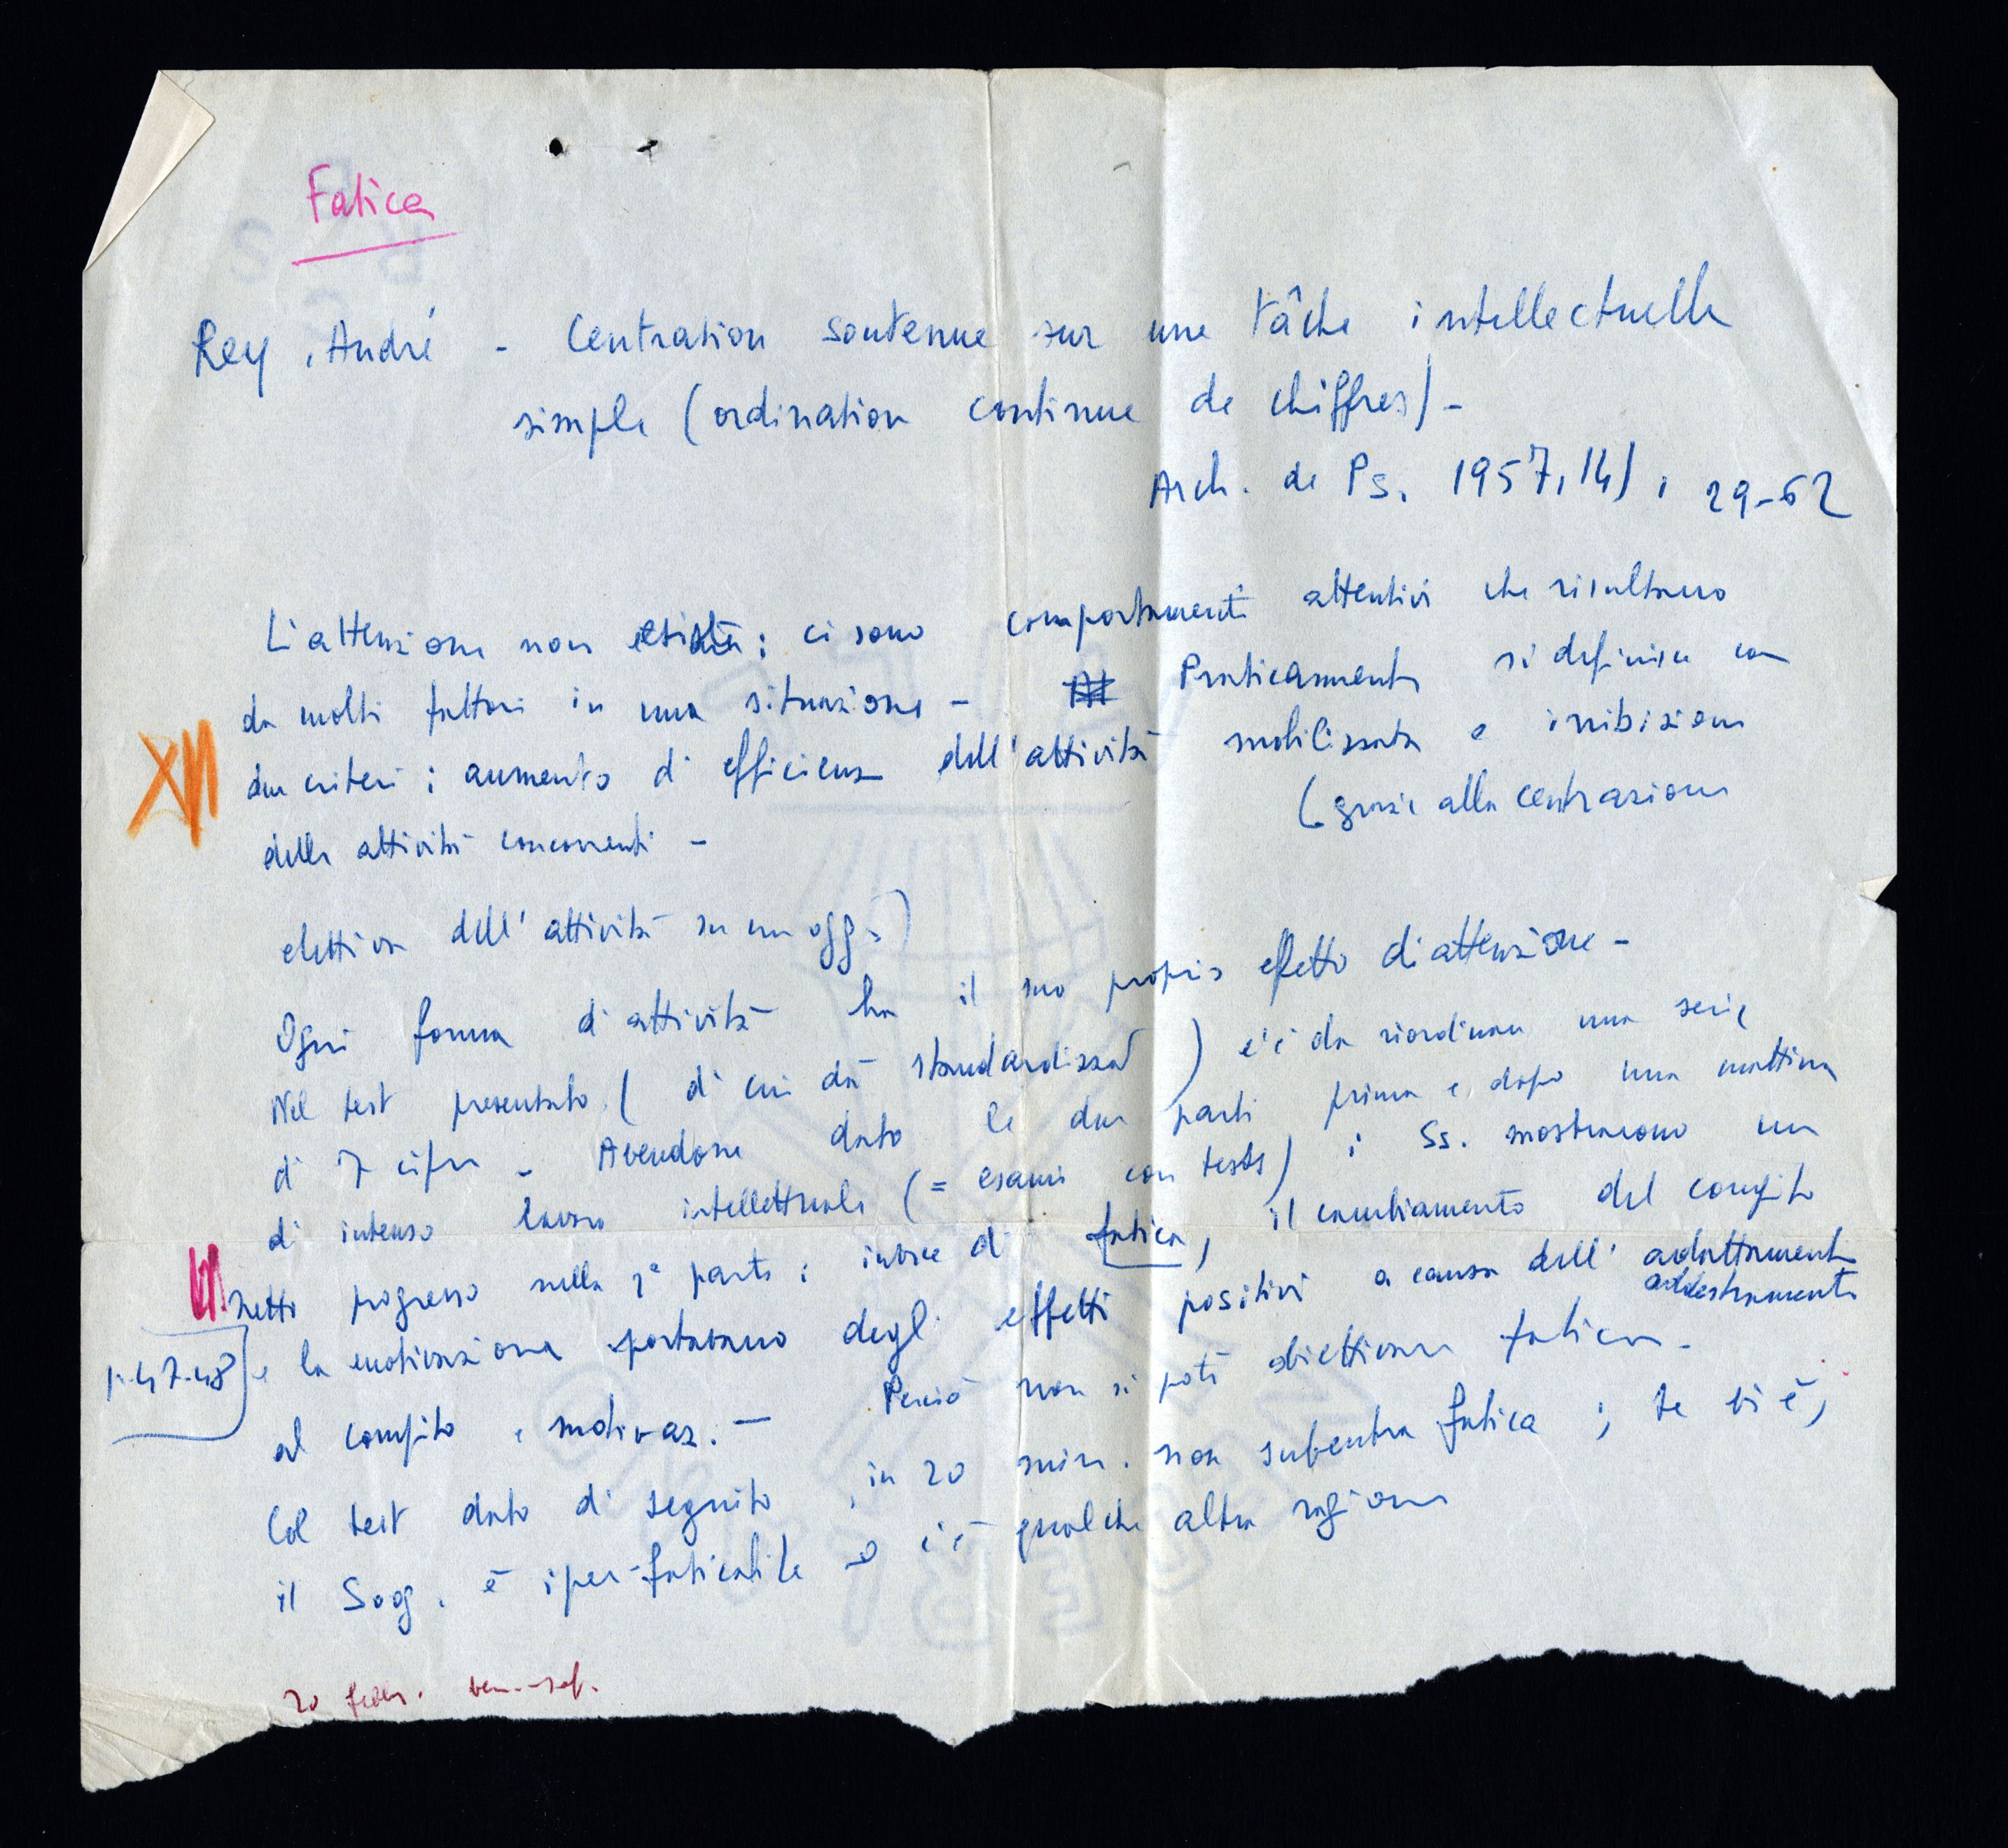 Fatica
Rey, André - Centration soutenue sur une tâche intellectuelle
simple (ordination continue de chiffres) -
Arch. de Ps. 1957, 14), 29-62
L'attenzione non esiste; ci sono comportamenti attentivi che risultano
da molti fattori in una situazione - Praticamente si definisce con
due criteri: aumento di efficienza dell'attività mobilizzata e inibizione
delle attività concorrenti - (grazie alla centrazione
elettiva dell'attività su un ogg.)
Ogni forma di attività ha il suo proprio effetto di attenzione -
Nel test presentato (di cui dà standardizzaz) c'è da riordinare una serie
di 7 cifre - Avendone dato le due parti prima e dopo una mattina
di intenso lavoro intellettuale (= esami con tests) i Ss. mostrarono un
netto progresso nella 2ª parte: invece di fatica, il cambiamento del compito
p. 47-48 e la motivazione portavano degli effetti positivi a causa dell'adattamento
addestramento
al compito e motivaz. - Perciò non si potè obiettivare fatica -
Col test dato di seguito, in 20 min. non subentra fatica; se vi è,
il Sog. è iper-faticabile o c'è qualche altra ragione
20 febbr.